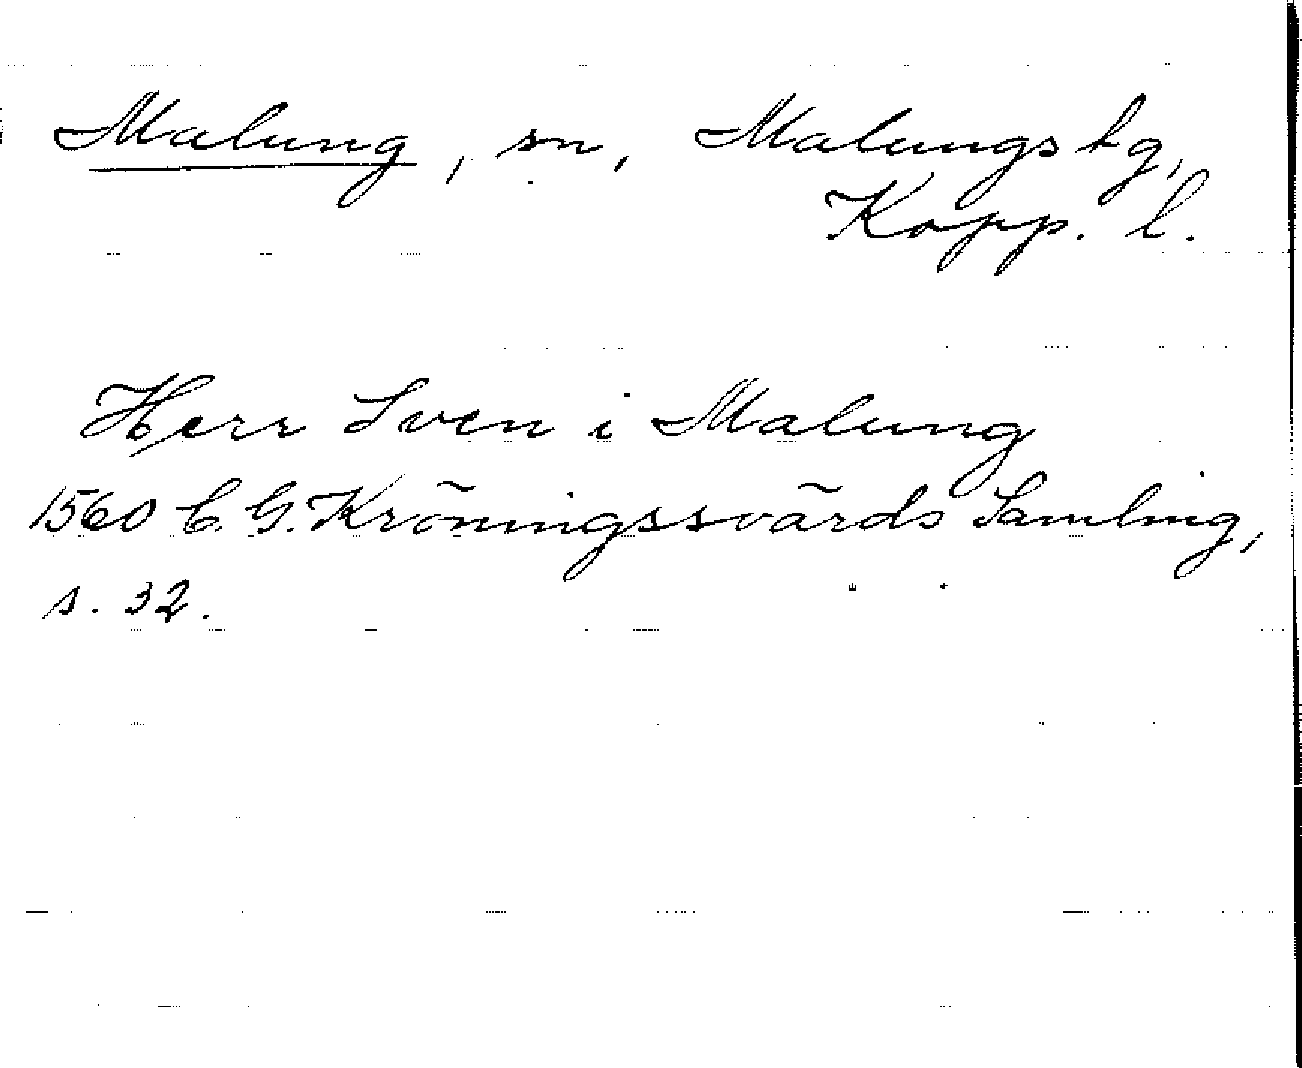 Malung, sn, Malungs tg,
Kopp. l.
Herr Sven i Malung
1560 C. G. Kröningssvärds Samling,
s. 32.